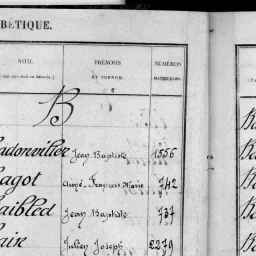 BÉTIQUE.
NOM. PRÉNOMS ET SURNOM. NUMÉROS MATRICULES.
B
adonvilier Jean Baptiste 1356
agot Aimé François Marie 742
aibled Jean Baptiste 737
aire Julien Joseph 2279